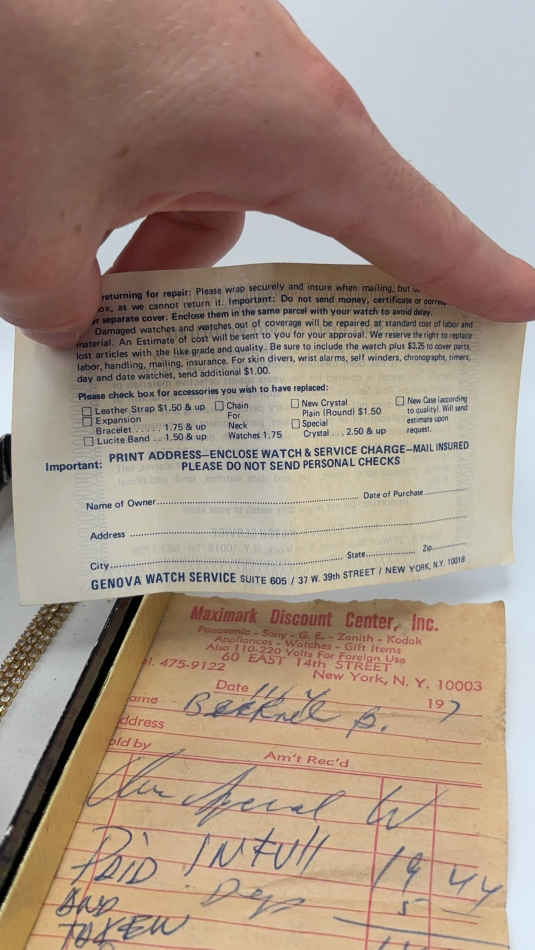 returning for repair: Please wrap securely and insure when mailing, but
ox, as we cannot return it. Important: Do not send money, certificate or
separate cover. Enclose them in the same parcel with your watch to avoid delay.
Damaged watches and watches out of coverage will be repaired at standard cost of labor and
material. An Estimate of cost will be sent to you for your approval. We reserve the right to replace
lost articles with the like grade and quality. Be sure to include the watch plus $3.25 to cover parts,
labor, handling, mailing, insurance. For skin divers, wrist alarms, self winders, chronographs, timers,
day and date watches, send additional $1.00.
Please check box for accessories you wish to have replaced:
Leather Strap $1.50 & up
Expansion
Bracelet...... 1.75 & up
Lucite Band ... 1.50 & up
Chain
For
Neck
Watches 1.75
New Crystal
Plain (Round) $1.50
Special
Crystal ... 2.50 & up
New Case (according
to quality). Will send
estimate upon
request.
Important: PRINT ADDRESS—ENCLOSE WATCH & SERVICE CHARGE—MAIL INSURED
PLEASE DO NOT SEND PERSONAL CHECKS
Name of Owner Date of Purchase
Address
City State Zip
GENOVA WATCH SERVICE SUITE 605 / 37 W. 39th STREET / NEW YORK, N.Y. 10018
Maximark Discount Center, Inc.
Panasonic - Sony - G. E. - Zenith - Kodak
Appliances - Watches - Gift Items
Also 110-220 Volts For Foreign Use
60 EAST 14th STREET
el. 475-9122 New York, N. Y. 10003
Date 197
ame B.
ddress
old by Am't Rec'd
Special W
PAID IN FULL 19 44
AND Dep 5
TAKEN